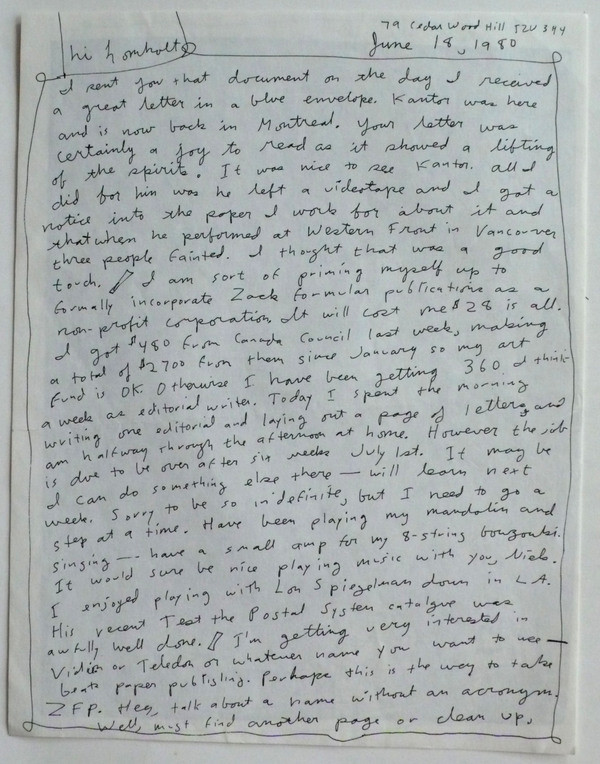 79 Cedar Wood Hill T2W 3H4
June 18, 1980
hi Lomholt
I sent you that document on the day I received
a great letter in a blue envelope. Kantor was here
and is now back in Montreal. Your letter was
certainly a joy to read as it showed a lifting
of the spirits. It was nice to see Kantor. all I
did for him was he left a videotape and I got a
notice into the paper I work for about it and
that when he performed at Western Front in Vancouver
three people fainted. I thought that was a good
touch. I am sort of priming myself up to
formally incorporate Zack formular publications as a
non-profit corporation. It will cost me $28 is all.
I got $480 from Canada Council last week, making
a total of $2700 from them since January so my art
fund is OK. Otherwise I have been getting 360 I think
a week as editorial writer. Today I spent the morning
writing one editorial and laying out a page of letters and
am halfway through the afternoon at home. However the job
is due to be over after six weeks July 1st. It may be
I can do something else there — will learn next
week. Sorry to be so indefinite, but I need to go a
step at a time. Have been playing my mandolin and
singing -- have a small amp for my 8-string bouzouki.
It would sure be nice playing music with you, Niels.
I enjoyed playing with Lon Spiegelman down in L.A.
His recent Test the Postal System catalgue was
awfully well done. I'm getting very interested in
Vidion or Teledon or whatever name you want to use —
beats paper publishing. Perhaps this is the way to take
ZFP. Hey, talk about a name without an acronym.
Well, must find another page or clean up,